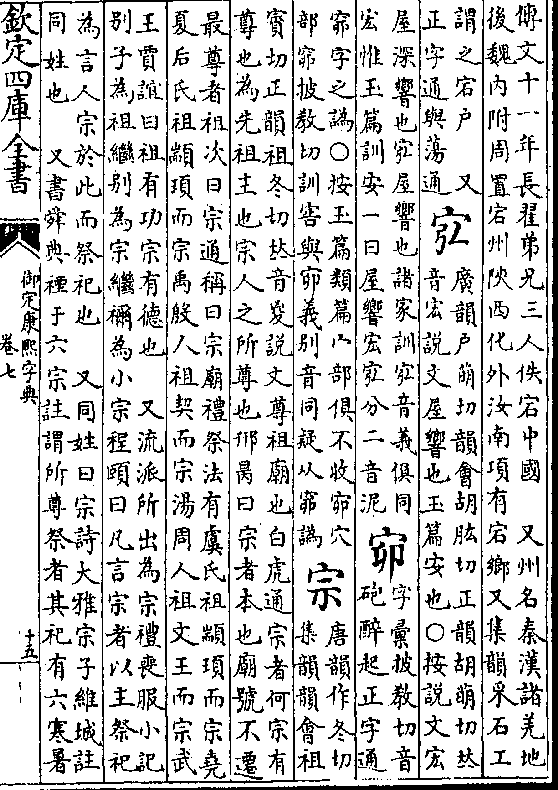 傳文十一年長翟弟兄三人佚宕中國　又州名秦漢諸羌地
後魏內附周置宕州陝西化外汝南項有宕鄉又集韻采石工
謂之宕戶　又
正字通與蕩通
宖
廣韻戶萌切韻會胡肱切正韻胡萌切𠀤
音宏說文屋響也玉篇安也○按說文宏
屋深響也宖屋響也諸家訓宖音義俱同
宏惟玉篇訓安一曰屋響宏宖分二音泥
𡧢
字彙披教切音
砲醉起正字通
窌字之譌○按玉篇類篇宀部俱不收𡧢穴
部窌披教切訓窖與𡧢義別音同疑从窌譌
宗
唐韻作冬切
集韻韻會祖
賨切正韻祖冬切𠀤音嵏說文尊祖廟也白虎通宗者何宗有
尊也為先祖主也宗人之所尊也邢昺曰宗者本也廟號不遷
最尊者祖次曰宗通稱曰宗廟禮祭法有虞氏祖顓頊而宗堯
夏后氏祖顓頊而宗禹殷人祖契而宗湯周人祖文王而宗武
王賈誼曰祖有功宗有德也　又流派所出為宗禮喪服小記
別子為祖繼別為宗繼禰為小宗程頤曰凡言宗者以主祭祀
為言人宗於此而祭祀也　又同姓曰宗詩大雅宗子維城註
同姓也　又書舜典禋于六宗註謂所尊祭者其祀有六寒暑
欽定四庫全書
御定康熙字典
卷七
十五